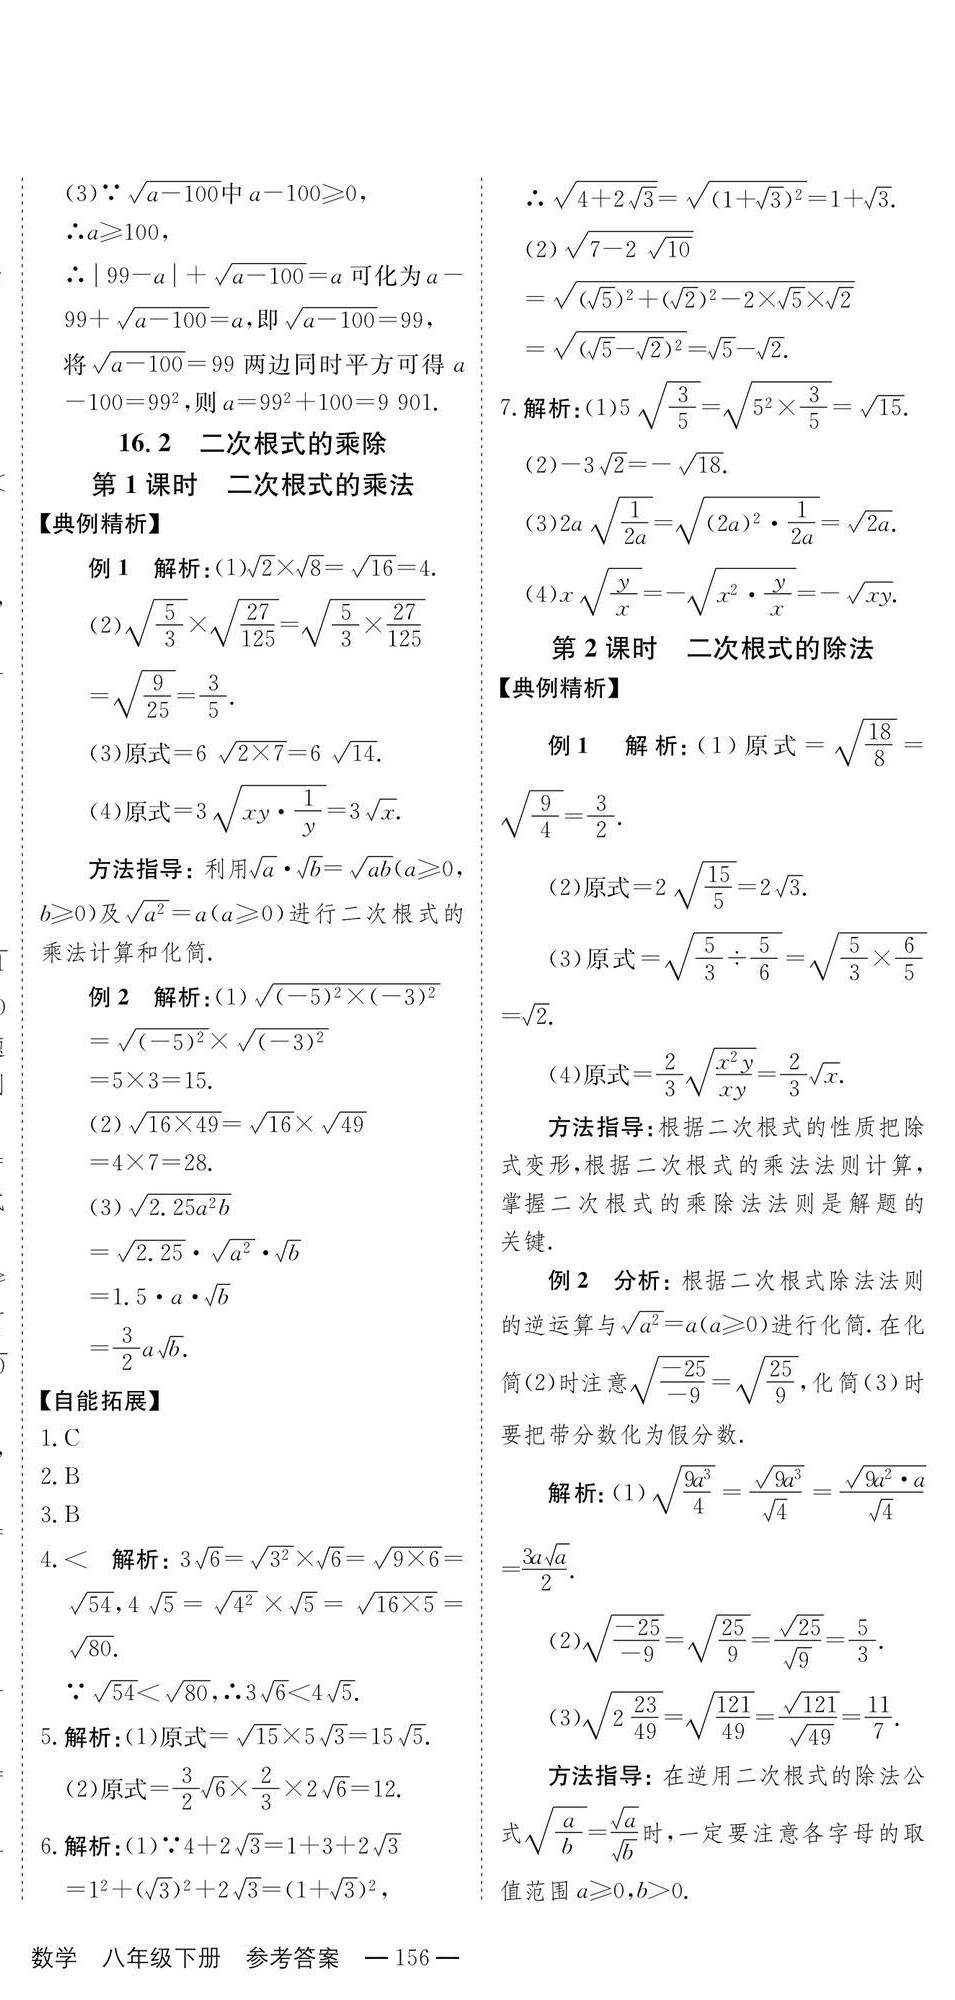 (3)∵√(a−100)中 a−100≥0,
∴a≥100,
∴|99−a|+√(a−100)=a 可化为 a−
99+√(a−100)=a,即√(a−100)=99,
将√(a−100)=99 两边同时平方可得 a
−100=99²,则 a=99²+100=9 901.
16.2 二次根式的乘除
第 1 课时 二次根式的乘法
【典例精析】
例 1 解析:(1)√2×√8=√16=4.
(2)√(5/3)×√(27/125)=√(5/3×27/125)
=√(9/25)=3/5.
(3)原式=6√(2×7)=6√14.
(4)原式=3√(xy·1/y)=3√x.
方法指导:利用√a·√b=√(ab)(a≥0,
b≥0)及√(a²)=a(a≥0)进行二次根式的
乘法计算和化简.
例 2 解析:(1)√((−5)²×(−3)²)
=√((−5)²)×√((−3)²)
=5×3=15.
(2)√(16×49)=√16×√49
=4×7=28.
(3)√(2.25a²b)
=√2.25·√(a²)·√b
=1.5·a·√b
=3/2 a√b.
【自能拓展】
1. C
2. B
3. B
4. < 解析:3√6=√(3²)×√6=√(9×6)=
√54,4√5=√(4²)×√5=√(16×5)=
√80.
∵√54<√80,∴3√6<4√5.
5. 解析:(1)原式=√15×5√3=15√5.
(2)原式=3/2√6×2/3×2√6=12.
6. 解析:(1)∵4+2√3=1+3+2√3
=1²+(√3)²+2√3=(1+√3)²,
∴√(4+2√3)=√((1+√3)²)=1+√3.
(2)√(7−2√10)
=√((√5)²+(√2)²−2×√5×√2)
=√((√5−√2)²)=√5−√2.
7. 解析:(1)5√(3/5)=√(5²×3/5)=√15.
(2)−3√2=−√18.
(3)2a√(1/2a)=√((2a)²·1/2a)=√(2a).
(4)x√(y/x)=−√(x²·y/x)=−√(xy).
第 2 课时 二次根式的除法
【典例精析】
例 1 解析:(1)原式=√(18/8)=
√(9/4)=3/2.
(2)原式=2√(15/5)=2√3.
(3)原式=√(5/3÷5/6)=√(5/3×6/5)
=√2.
(4)原式=2/3√(x²y/xy)=2/3√x.
方法指导:根据二次根式的性质把除
式变形,根据二次根式的乘法法则计算,
掌握二次根式的乘除法法则是解题的
关键.
例 2 分析:根据二次根式除法法则
的逆运算与√(a²)=a(a≥0)进行化简.在化
简(2)时注意√(−25/−9)=√(25/9),化简(3)时
要把带分数化为假分数.
解析:(1)√(9a³/4)=√(9a³)/√4=√(9a²·a)/√4
=3a√a/2.
(2)√(−25/−9)=√(25/9)=√25/√9=5/3.
(3)√(2 23/49)=√(121/49)=√121/√49=11/7.
方法指导:在逆用二次根式的除法公
式√(a/b)=√a/√b时,一定要注意各字母的取
值范围 a≥0,b>0.
数学 八年级下册 参考答案 — 156 —